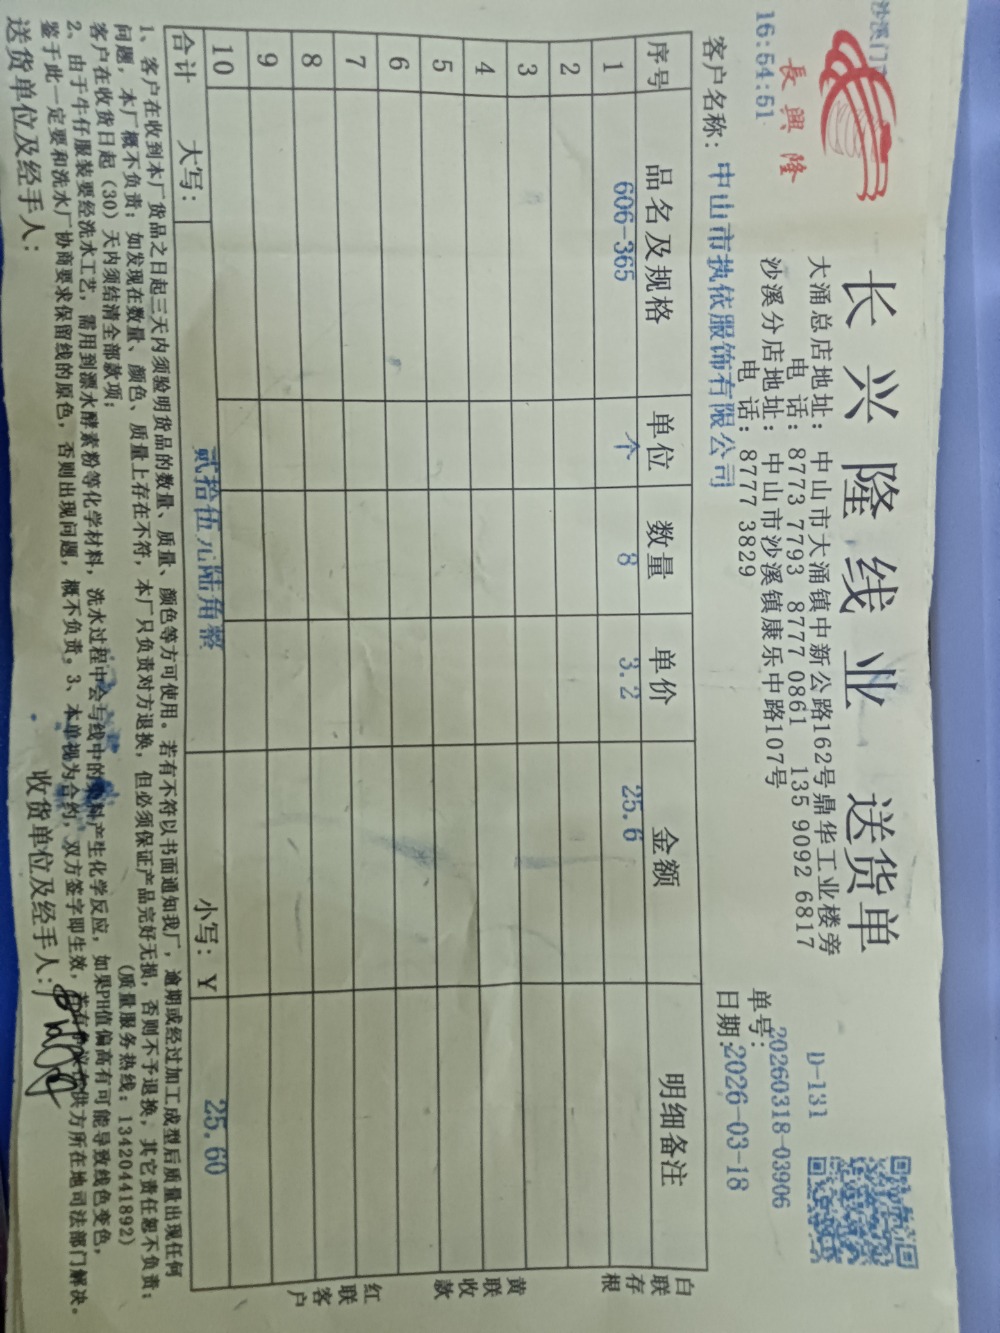 沙溪门
16:54:51
長興隆
长兴隆线业 送货单
大涌总店地址：中山市大涌镇中新公路162号鼎华工业楼旁
电 话：8773 7793 8777 0861 135 9092 6817
沙溪分店地址：中山市沙溪镇康乐中路107号
电 话：8777 3829
D-131
单号：20260318-03906
日期：2026-03-18
客户名称：中山市执依服饰有限公司
序号 品名及规格 单位 数量 单价 金额 明细备注
1 606-365 个 8 3.2 25.6
2
3
4
5
6
7
8
9
10
合计 大写： 贰拾伍元陆角整 小写：Y 25.60
白联存根
黄联收款
红联客户
1、客户在收到本厂货品之日起三天内须验明货品的数量、质量、颜色等方可使用。若有不符以书面通知我厂，逾期或经过加工成型后质量出现任何
问题，本厂概不负责；如发现在数量、颜色、质量上存在不符，本厂只负责对方退换，但必须保证产品完好无损，否则不予退换，其它责任恕不负责；
客户在收货日起（30）天内须结清全部款项； （质量服务热线：13420441892）
2、由于牛仔服装要经洗水工艺，需用到漂水酵素粉等化学材料，洗水过程中会与线中的料产生化学反应，如果PH值偏高有可能导致线色变色，
鉴于此一定要和洗水厂协商要求保留线的原色，否则出现问题，概不负责。3、本单视为合约，双方签字即生效，若有供方所在地司法部门解决。
送货单位及经手人： 收货单位及经手人：